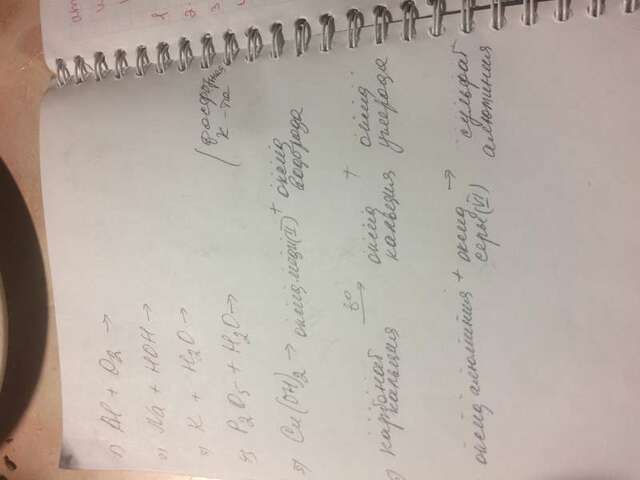 1) Al + O2 →
2) Na + HOH →
3) K + H2O →
4) P2O5 + H2O → (фосфорная
к-та
5) Cu(OH)2 → оксид меди(II) + оксид
водорода
карбонат t° → оксид + оксид
кальция кальция углерода
оксид алюминия + оксид → сульфат
серы(VI) алюминия